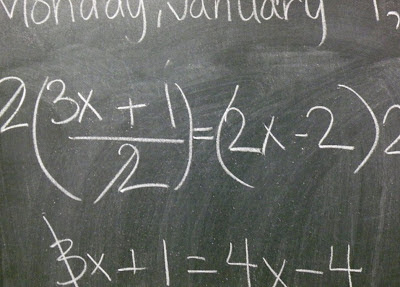 Monday, January 1,
2(3x + 1/2) = (2x - 2)2
3x + 1 = 4x - 4